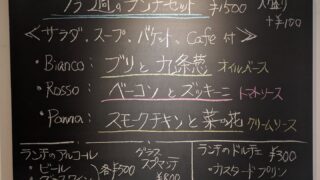 ランチセット ¥1500 大盛り +¥100
≪サラダ、スープ、バゲット、Cafe 付≫
・Bianco: ブリと九条葱 オイルベース
・Rosso: ベーコンとズッキーニ トマトソース
・Panna: スモークチキンと菜の花 クリームソース
ランチのアルコール
・ビール
各¥500
グラス
スプマンテ
¥800
ランチのドルチェ ¥300
・カスタードプリン